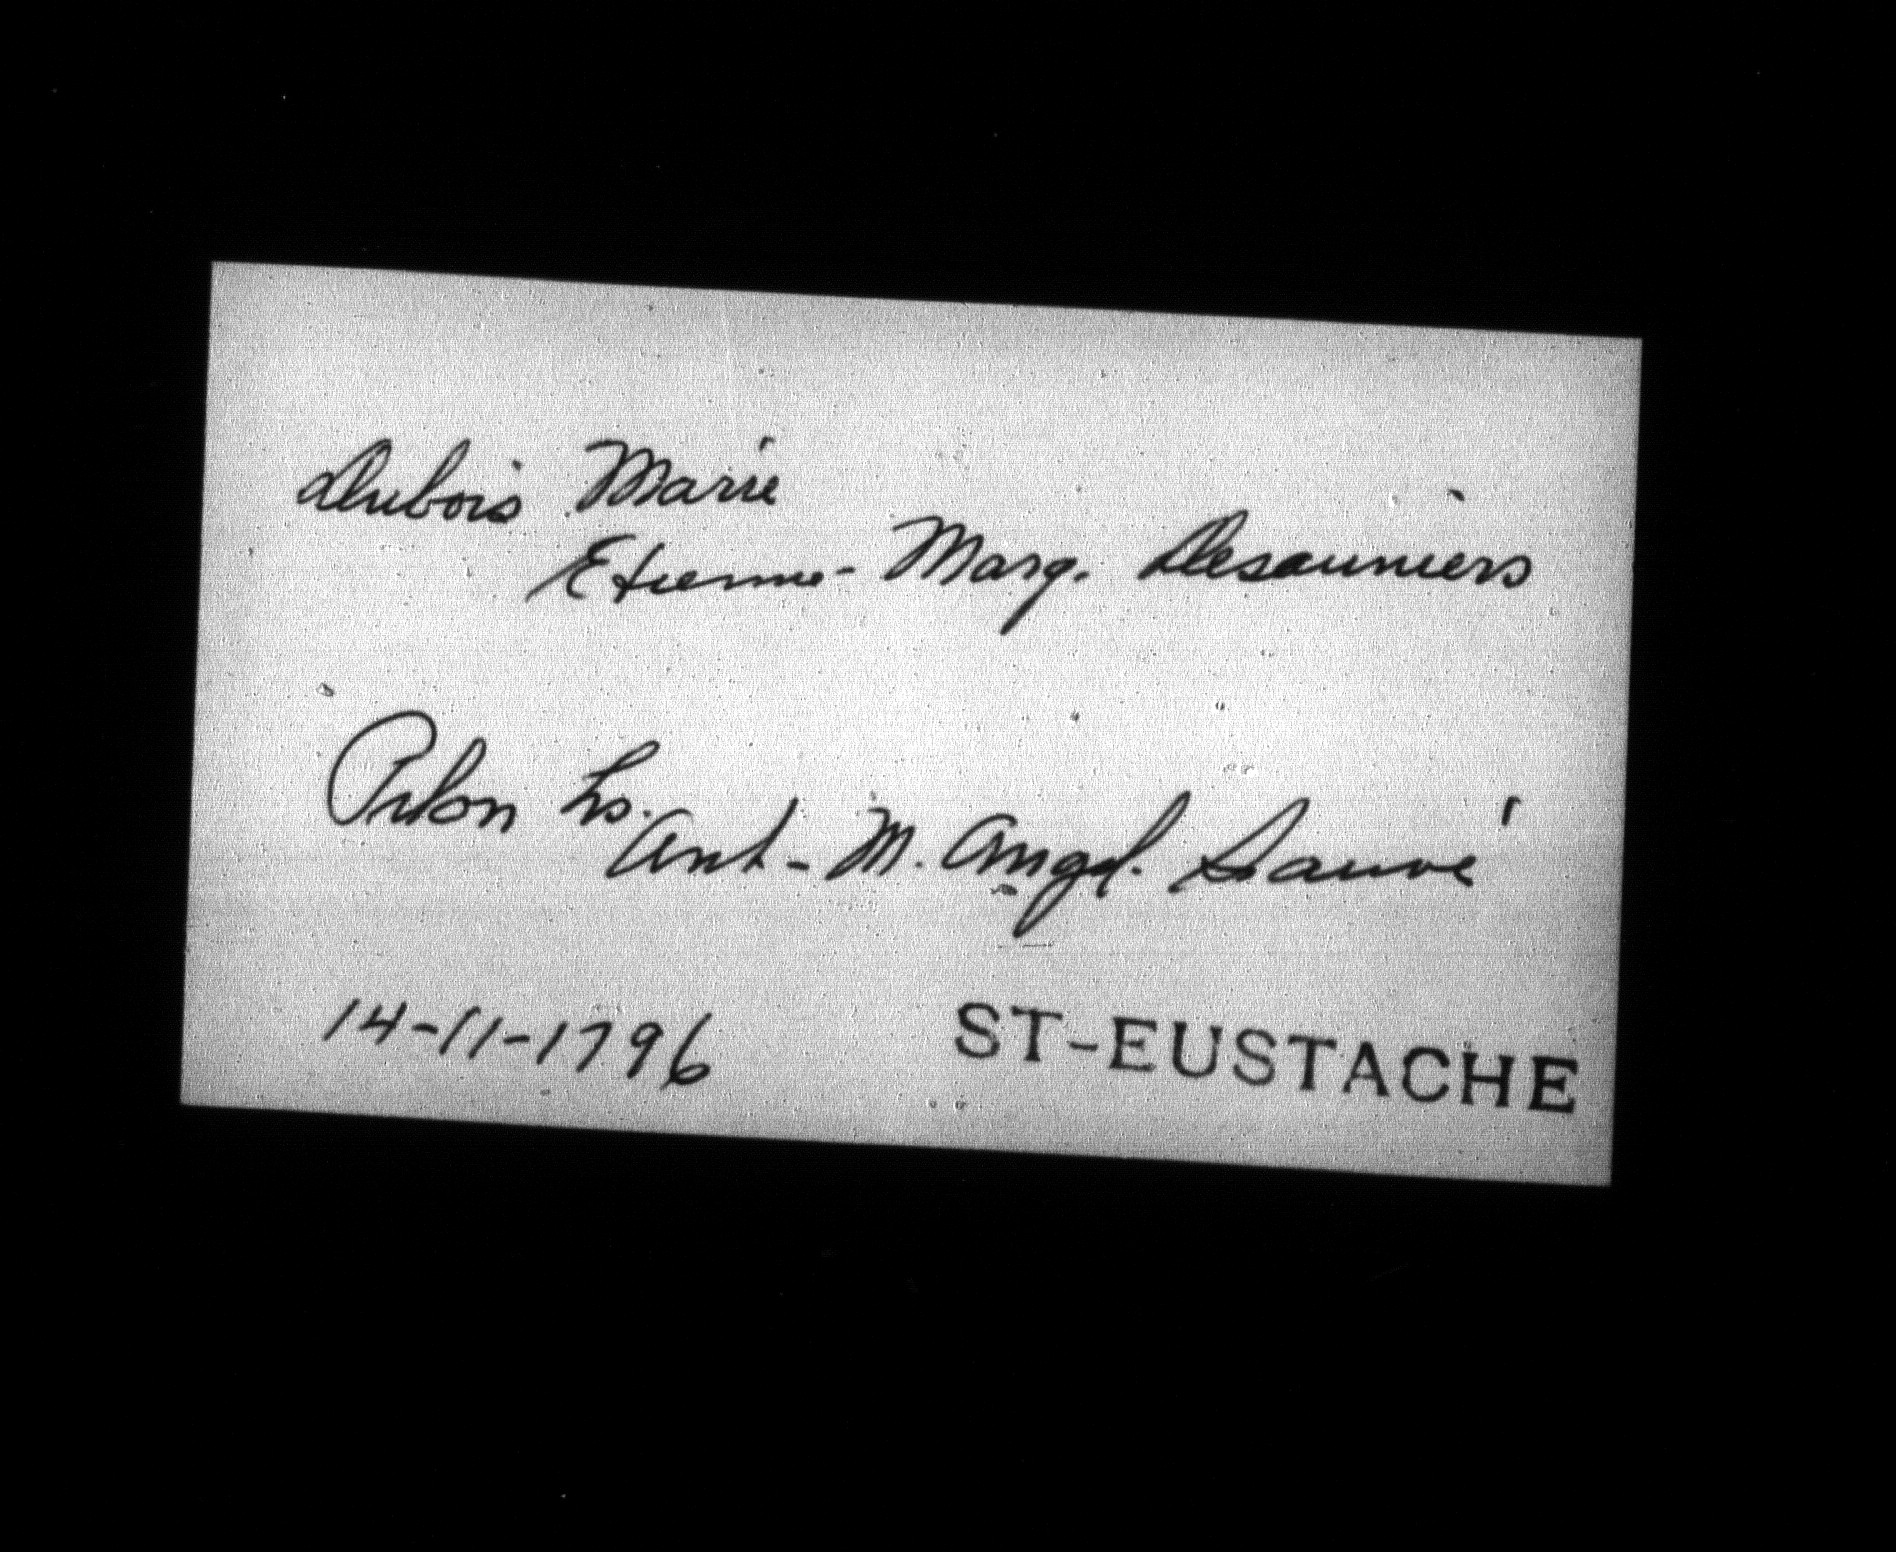 Dubois Marie
Etienne - Marg. Desauniers
Pilon Ls.
Ant - M. Angel. Sauvé
14-11-1796 ST-EUSTACHE